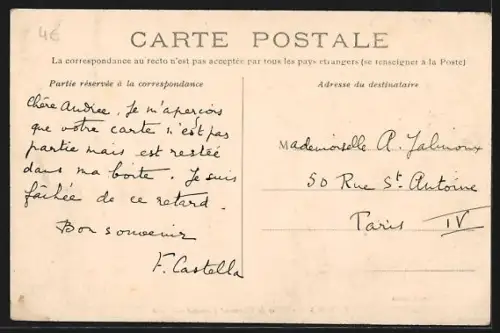 4€
CARTE POSTALE
La correspondance au recto n'est pas acceptée par tous les pays étrangers (se renseigner à la Poste)
Partie réservée à la correspondance
Adresse du destinataire
Chère Andrée, je m'aperçois
que votre carte n'est pas
partie mais est restée
dans ma boite. Je suis
fâchée de ce retard.
Bon souvenir
F. Castella
Mademoiselle A.
50 Rue St. Antoine
Paris IV